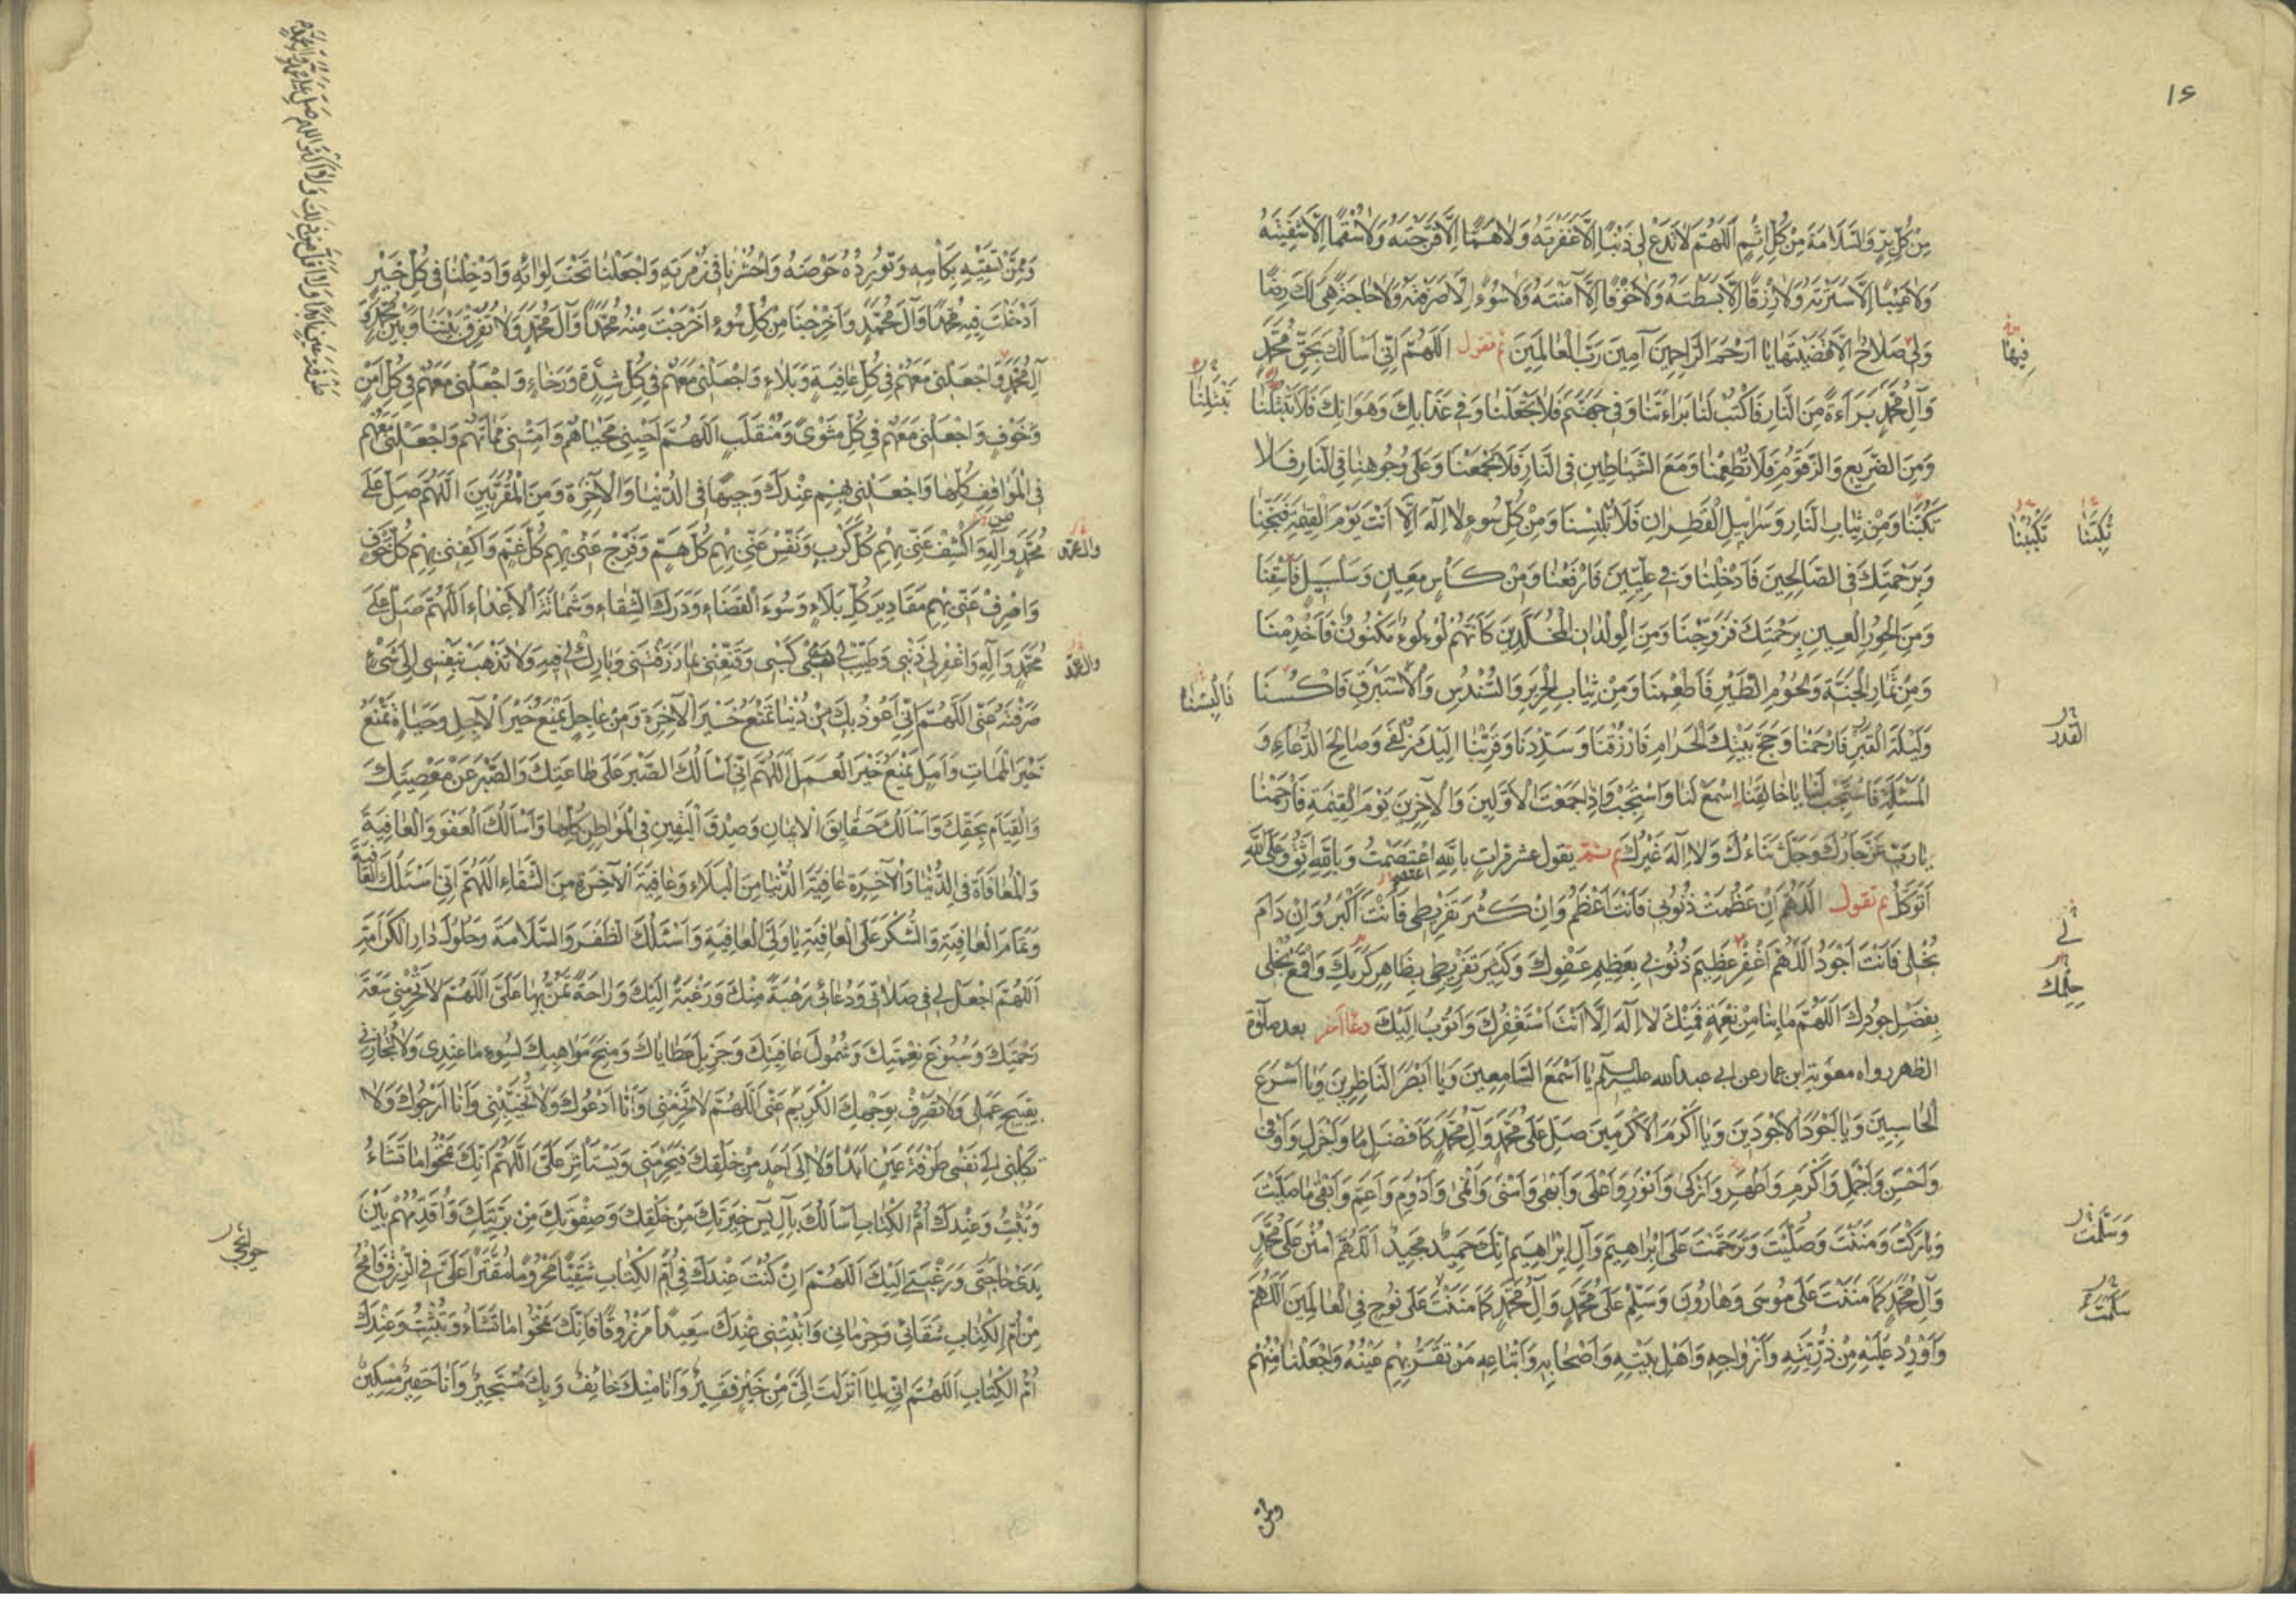 ١٦
مِنْ كُلِّ بِرٍّ وَالسَّلَامَةَ مِنْ كُلِّ اِثْمٍ اَللّٰهُمَّ لَا تَدَعْ لِي ذَنْبًا اِلَّا غَفَرْتَهُ وَلَا هَمًّا اِلَّا فَرَّجْتَهُ وَلَا سُقْمًا اِلَّا شَفَيْتَهُ
وَلَا عَيْبًا اِلَّا سَتَرْتَهُ وَلَا رِزْقًا اِلَّا بَسَطْتَهُ وَلَا خَوْفًا اِلَّا آمَنْتَهُ وَلَا سُوءًا اِلَّا صَرَفْتَهُ وَلَا حَاجَةً هِيَ لَكَ رِضًا
وَلِيَ صَلَاحٌ اِلَّا قَضَيْتَهَا يَا اَرْحَمَ الرَّاحِمِينَ آمِينَ رَبَّ الْعَالَمِينَ ثم تقول اَللّٰهُمَّ اِنِّي اَسْاَلُكَ بِحَقِّ مُحَمَّدٍ
فِيهَا
وَآلِ مُحَمَّدٍ بَرَاءَةً مِنَ النَّارِ فَاكْتُبْ لَنَا بَرَاءَتَنَا وَفِي جَهَنَّمَ فَلَا تَجْعَلْنَا وَفِي عَذَابِكَ وَهَوَانِكَ فَلَا تَبْتَلِنَا
تَبْتَلِنَا
وَمِنَ الضَّرِيعِ وَالزَّقُّومِ فَلَا تُطْعِمْنَا وَمَعَ الشَّيَاطِينِ فِي النَّارِ فَلَا تَجْمَعْنَا وَعَلَى وُجُوهِنَا فِي النَّارِ فَلَا
تَكُبَّنَا وَمِنْ ثِيَابِ النَّارِ وَسَرَابِيلِ الْقَطِرَانِ فَلَا تُلْبِسْنَا وَمِنْ كُلِّ سُوءٍ لَا اِلٰهَ اِلَّا اَنْتَ يَوْمَ الْقِيٰمَةِ فَنَجِّنَا
تُكِبَّنَا تَكْبُبْنَا
وَبِرَحْمَتِكَ فِي الصَّالِحِينَ فَاَدْخِلْنَا وَفِي عِلِّيِّينَ فَارْفَعْنَا وَمِنْ كَأْسٍ مَعِينٍ وَسَلْسَبِيلٍ فَاسْقِنَا
وَمِنَ الْحُورِ الْعِينِ بِرَحْمَتِكَ فَزَوِّجْنَا وَمِنَ الْوِلْدَانِ الْمُخَلَّدِينَ كَاَنَّهُمْ لُؤْلُؤٌ مَكْنُونٌ فَاَخْدِمْنَا
وَمِنْ ثِمَارِ الْجَنَّةِ وَلُحُومِ الطَّيْرِ فَاَطْعِمْنَا وَمِنْ ثِيَابِ الْحَرِيرِ وَالسُّنْدُسِ وَالْاِسْتَبْرَقِ فَاكْسُنَا
فَاَلْبِسْنَا
وَلَيْلَةَ الْقَبْرِ فَارْحَمْنَا وَحَجَّ بَيْتِكَ الْحَرَامِ فَارْزُقْنَا وَسَدِّدْنَا وَقَرِّبْنَا اِلَيْكَ زُلْفَى وَصَالِحَ الدُّعَاءِ وَ
القدر
الْمَسْئَلَةِ فَاسْتَجِبْ لَنَا يَا خَالِقَنَا اِسْمَعْ لَنَا وَاسْتَجِبْ وَاِذَا جَمَعْتَ الْاَوَّلِينَ وَالْآخِرِينَ يَوْمَ الْقِيٰمَةِ فَارْحَمْنَا
يَا رَبِّ عَزَّ جَارُكَ وَجَلَّ ثَنَاءُكَ وَلَا اِلٰهَ غَيْرُكَ ثم يقول عشر مرات بِاللّٰهِ اعْتَصَمْتُ وَبِاللّٰهِ اَثِقُ وَعَلَى اللّٰهِ
اَتَوَكَّلُ ثم تقول اَللّٰهُمَّ اِنْ عَظُمَتْ ذُنُوبِي فَاَنْتَ اَعْظَمُ وَاِنْ كَبُرَ تَفْرِيطِي فَاَنْتَ اَكْبَرُ وَاِنْ دَامَ
بُخْلِي فَاَنْتَ اَجْوَدُ اَللّٰهُمَّ اغْفِرْ عَظِيمَ ذُنُوبِي بِعَظِيمِ عَفْوِكَ وَكَثِيرَ تَفْرِيطِي بِظَاهِرِ كَرَمِكَ وَاقْمَعْ بُخْلِي
لِي
حِلْمِكَ
بِفَضْلِ جُودِكَ اَللّٰهُمَّ مَا بِنَا مِنْ نِعْمَةٍ فَمِنْكَ لَا اِلٰهَ اِلَّا اَنْتَ اَسْتَغْفِرُكَ وَاَتُوبُ اِلَيْكَ دعا آخر بعد صلوة
الظهر رواه معوية ابن عمار عن ابي عبدالله عليه السلم يَا اَسْمَعَ السَّامِعِينَ وَيَا اَبْصَرَ النَّاظِرِينَ وَيَا اَسْرَعَ
الْحَاسِبِينَ وَيَا اَجْوَدَ الْاَجْوَدِينَ وَيَا اَكْرَمَ الْاَكْرَمِينَ صَلِّ عَلَى مُحَمَّدٍ وَآلِ مُحَمَّدٍ كَاَفْضَلِ مَا وَاَجْزَلِ وَاَوْفَى
وَاَحْسَنِ وَاَجْمَلِ وَاَكْرَمِ وَاَطْهَرِ وَاَزْكَى وَاَنْوَرِ وَاَعْلَى وَاَبْهَى وَاَسْنَى وَاَنْمَى وَاَدْوَمِ وَاَعَمِّ وَاَبْقَى مَا صَلَّيْتَ
وَبَارَكْتَ وَمَنَنْتَ وَصَلَّيْتَ وَتَرَحَّمْتَ عَلَى اِبْرَاهِيمَ وَآلِ اِبْرَاهِيمَ اِنَّكَ حَمِيدٌ مَجِيدٌ اَللّٰهُمَّ امْنُنْ عَلَى مُحَمَّدٍ
وَسَلَّمْتَ
وَآلِ مُحَمَّدٍ كَمَا مَنَنْتَ عَلَى مُوسَى وَهَارُونَ وَسَلِّمْ عَلَى مُحَمَّدٍ وَآلِ مُحَمَّدٍ كَمَا مَنَنْتَ عَلَى نُوحٍ فِي الْعَالَمِينَ اَللّٰهُمَّ
سَلَّمْتَ
وَاَوْرِدْ عَلَيْهِ مِنْ ذُرِّيَّتِهِ وَاَزْوَاجِهِ وَاَهْلِ بَيْتِهِ وَاَصْحَابِهِ وَاَتْبَاعِهِ مَنْ تَقَرُّ بِهِمْ عَيْنُهُ وَاجْعَلْنَا مِنْهُمْ
وممن
وَمِمَّنْ تَسْقِيهِ بِكَأْسِهِ وَتُورِدُهُ حَوْضَهُ وَاحْشُرْنَا فِي زُمْرَتِهِ وَاجْعَلْنَا تَحْتَ لِوَائِهِ وَاَدْخِلْنَا فِي كُلِّ خَيْرٍ
اَدْخَلْتَ فِيهِ مُحَمَّدًا وَآلَ مُحَمَّدٍ وَاَخْرِجْنَا مِنْ كُلِّ سُوءٍ اَخْرَجْتَ مِنْهُ مُحَمَّدًا وَآلَ مُحَمَّدٍ وَلَا تُفَرِّقْ بَيْنَنَا وَبَيْنَ مُحَمَّدٍ وَ
آلِ مُحَمَّدٍ وَاجْعَلْنِي مَعَهُمْ فِي كُلِّ عَافِيَةٍ وَبَلَاءٍ وَاجْعَلْنِي مَعَهُمْ فِي كُلِّ شِدَّةٍ وَرَخَاءٍ وَاجْعَلْنِي مَعَهُمْ فِي كُلِّ اَمْنٍ
وَخَوْفٍ وَاجْعَلْنِي مَعَهُمْ فِي كُلِّ مَثْوًى وَمُنْقَلَبٍ اَللّٰهُمَّ اَحْيِنِي مَحْيَاهُمْ وَاَمِتْنِي مَمَاتَهُمْ وَاجْعَلْنِي مَعَهُمْ
فِي الْمَوَاقِفِ كُلِّهَا وَاجْعَلْنِي بِهِمْ عِنْدَكَ وَجِيهًا فِي الدُّنْيَا وَالْآخِرَةِ وَمِنَ الْمُقَرَّبِينَ اَللّٰهُمَّ صَلِّ عَلَى
مُحَمَّدٍ وَآلِهِ وَاكْشِفْ عَنِّي بِهِمْ كُلَّ كَرْبٍ وَنَفِّسْ عَنِّي بِهِمْ كُلَّ هَمٍّ وَفَرِّجْ عَنِّي بِهِمْ كُلَّ غَمٍّ وَاكْفِنِي بِهِمْ كُلَّ خَوْفٍ
وآل محمد
وَاصْرِفْ عَنِّي بِهِمْ مَقَادِيرَ كُلِّ بَلَاءٍ وَسُوءَ الْقَضَاءِ وَدَرَكَ الشَّقَاءِ وَشَمَاتَةَ الْاَعْدَاءِ اَللّٰهُمَّ صَلِّ عَلَى
مُحَمَّدٍ وَآلِهِ وَاغْفِرْ لِي ذَنْبِي وَطَيِّبْ لِي كَسْبِي وَقَنِّعْنِي بِمَا رَزَقْتَنِي وَبَارِكْ لِي فِيهِ وَلَا تَذْهَبْ بِنَفْسِي اِلَى شَيْءٍ
وآل محمد
صَرَفْتَهُ عَنِّي اَللّٰهُمَّ اِنِّي اَعُوذُ بِكَ مِنْ دُنْيَا تَمْنَعُ خَيْرَ الْآخِرَةِ وَمِنْ عَاجِلٍ يَمْنَعُ خَيْرَ الْآجِلِ وَحَيَاةٍ تَمْنَعُ
خَيْرَ الْمَمَاتِ وَاَمَلٍ يَمْنَعُ خَيْرَ الْعَمَلِ اَللّٰهُمَّ اِنِّي اَسْاَلُكَ الصَّبْرَ عَلَى طَاعَتِكَ وَالصَّبْرَ عَنْ مَعْصِيَتِكَ
وَالْقِيَامَ بِحَقِّكَ وَاَسْاَلُكَ حَقَايِقَ الْاِيمَانِ وَصِدْقَ الْيَقِينِ فِي الْمَوَاطِنِ كُلِّهَا وَاَسْاَلُكَ الْعَفْوَ وَالْعَافِيَةَ
وَالْمُعَافَاةَ فِي الدُّنْيَا وَالْآخِرَةِ عَافِيَةَ الدُّنْيَا مِنَ الْبَلَاءِ وَعَافِيَةَ الْآخِرَةِ مِنَ الشَّقَاءِ اَللّٰهُمَّ اِنِّي اَسْئَلُكَ الْعَافِيَةَ
وَتَمَامَ الْعَافِيَةِ وَالشُّكْرَ عَلَى الْعَافِيَةِ يَا وَلِيَّ الْعَافِيَةِ وَاَسْئَلُكَ الظَّفَرَ وَالسَّلَامَةَ وَحُلُولَ دَارِ الْكَرَامَةِ
اَللّٰهُمَّ اجْعَلْ لِي فِي صَلَاتِي وَدُعَائِي رَهْبَةً مِنْكَ وَرَغْبَةً اِلَيْكَ وَرَاحَةً تَمُنُّ بِهَا عَلَيَّ اَللّٰهُمَّ لَا تَحْرِمْنِي سَعَةَ
رَحْمَتِكَ وَسُبُوغَ نِعْمَتِكَ وَشُمُولَ عَافِيَتِكَ وَجَزِيلَ عَطَايَاكَ وَمِنَحَ مَوَاهِبِكَ لِسُوءِ مَا عِنْدِي وَلَا تُجَازِنِي
بِقَبِيحِ عَمَلِي وَلَا تَصْرِفْ بِوَجْهِكَ الْكَرِيمِ عَنِّي اَللّٰهُمَّ لَا تَحْرِمْنِي وَاَنَا اَدْعُوكَ وَلَا تُخَيِّبْنِي وَاَنَا اَرْجُوكَ وَلَا
تَكِلْنِي اِلَى نَفْسِي طَرْفَةَ عَيْنٍ اَبَدًا وَلَا اِلَى اَحَدٍ مِنْ خَلْقِكَ فَيَحْرِمَنِي وَيَسْتَأْثِرَ عَلَيَّ اَللّٰهُمَّ اِنَّكَ تَمْحُو مَا تَشَاءُ
وَتُثْبِتُ وَعِنْدَكَ اُمُّ الْكِتَابِ اَسْاَلُكَ بِآلِ يٰسٓ خِيَرَتِكَ مِنْ خَلْقِكَ وَصَفْوَتِكَ مِنْ بَرِيَّتِكَ وَاُقَدِّمُهُمْ بَيْنَ
يَدَيْ حَاجَتِي وَرَغْبَتِي اِلَيْكَ اَللّٰهُمَّ اِنْ كُنْتَ عِنْدَكَ فِي اُمِّ الْكِتَابِ شَقِيًّا مَحْرُومًا مُقَتَّرًا عَلَيَّ فِي الرِّزْقِ فَامْحُ
حوائجي
مِنْ اُمِّ الْكِتَابِ شَقَائِي وَحِرْمَانِي وَاَثْبِتْنِي عِنْدَكَ سَعِيدًا مَرْزُوقًا فَاِنَّكَ تَمْحُو مَا تَشَاءُ وَتُثْبِتُ وَعِنْدَكَ
اُمُّ الْكِتَابِ اَللّٰهُمَّ اِنِّي لِمَا اَنْزَلْتَ اِلَيَّ مِنْ خَيْرٍ فَقِيرٌ وَاَنَا مِنْكَ خَائِفٌ وَبِكَ مُسْتَجِيرٌ وَاَنَا حَقِيرٌ مِسْكِينٌ
طَرْفَةَ عَيْنٍ اَبَدًا وَلَا اَقَلَّ مِنْ ذٰلِكَ وَلَا اَكْثَرَ اللهم صَلِّ عَلَى مُحَمَّدٍ